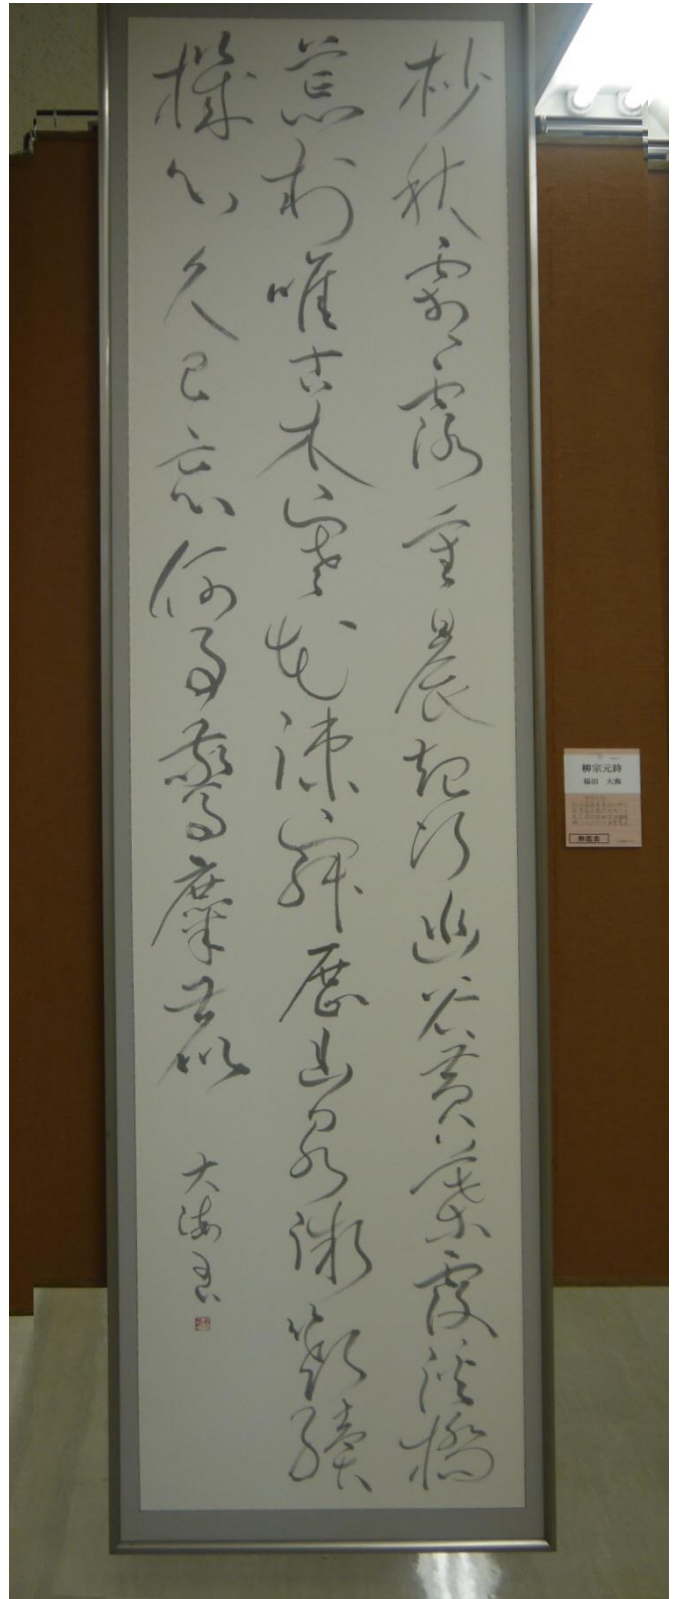 杪秋霜露重晨起行幽谷黄葉覆渓橋
荒村唯古木寒花疎寂歴幽泉微断続
機心久已忘何事驚麋鹿
大海書
柳宗元詩
福田 大海
無鑑査